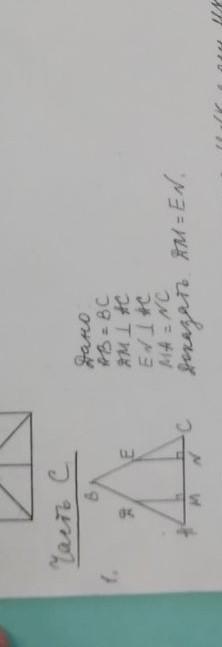 Часть С.
1.
Дано:
AB = BC
DM ⊥ AC
EN ⊥ AC
MA = NC
Доказать: DM = EN.
B
D E
A M N C